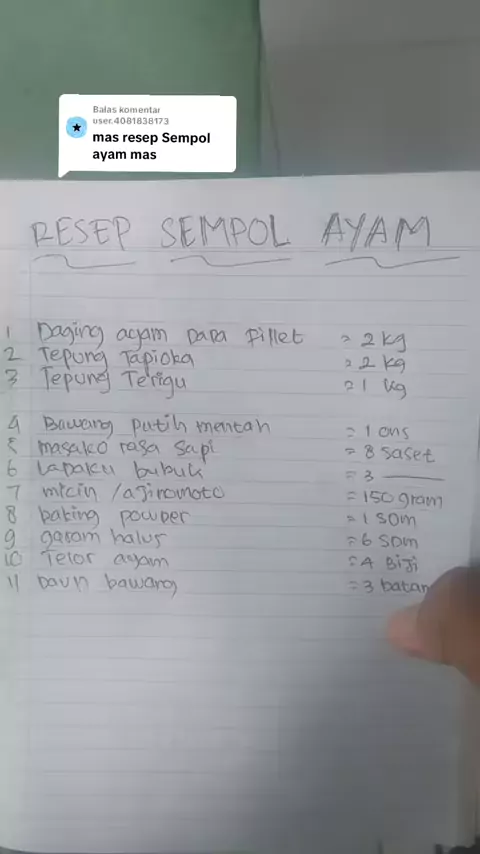 Balas komentar
user.4081838173
mas resep Sempol
ayam mas
RESEP SEMPOL AYAM
1 Daging ayam dada Fillet = 2 kg
2 Tepung Tapioka = 2 kg
3 Tepung Terigu = 1 kg
4 Bawang putih mentah = 1 ons
5 masako rasa sapi = 8 saset
6 Ladaku bubuk = 3
7 micin / ajinomoto = 150 gram
8 baking powder = 1 sdm
9 garam halus = 6 sdm
10 Telor ayam = 4 Biji
11 Daun bawang = 3 batan